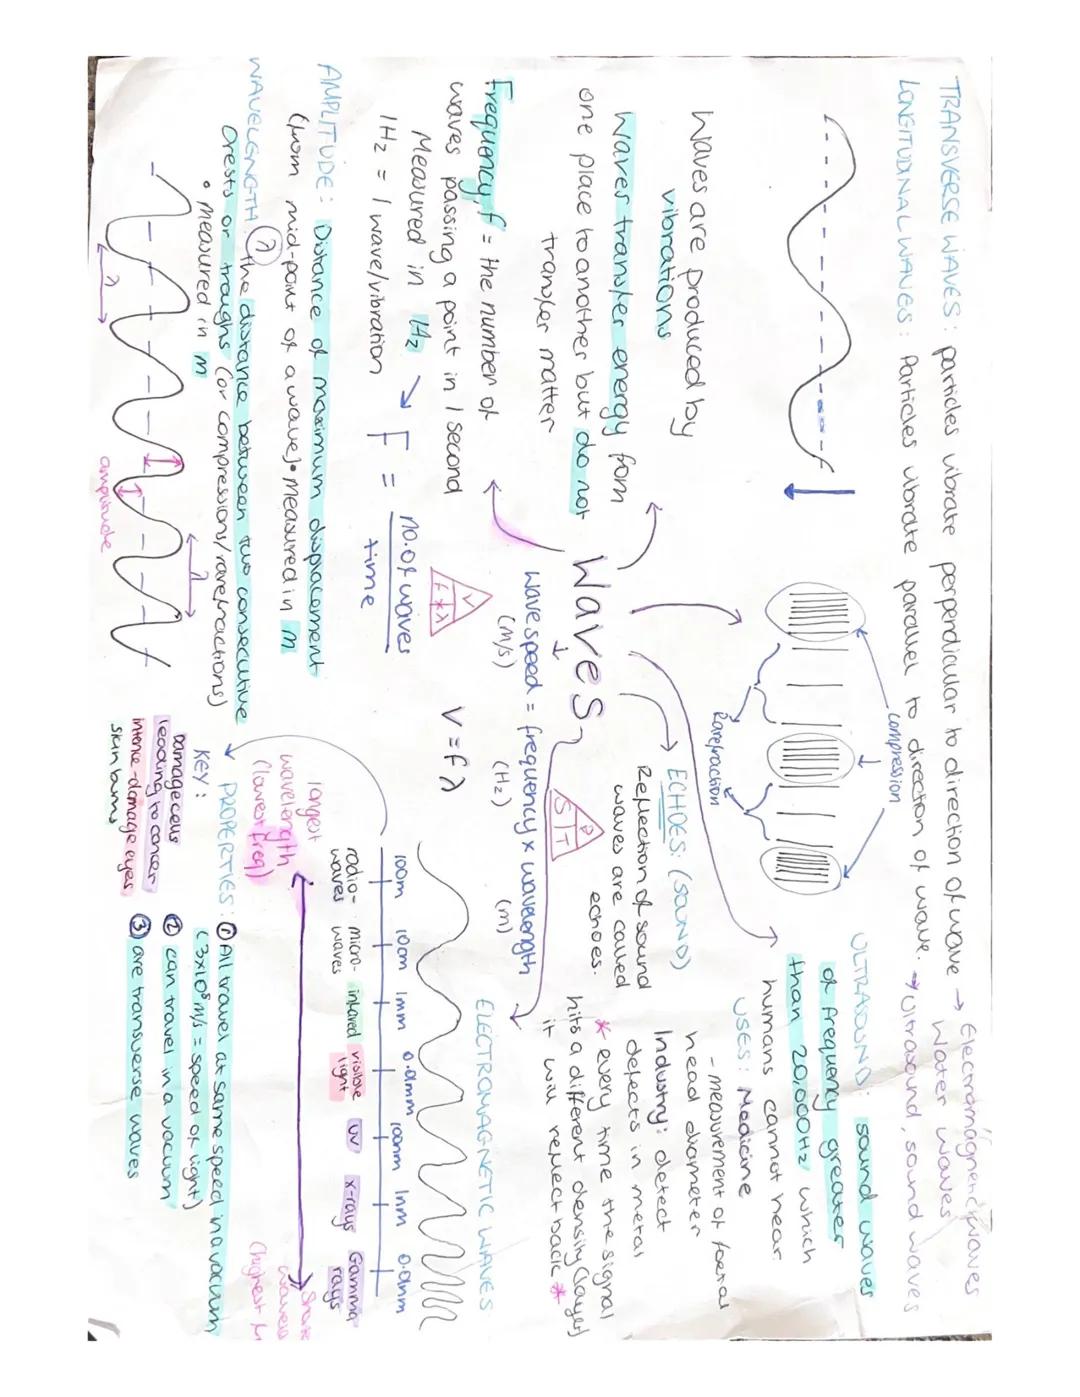 TRANSVERSE WAVES: particles vibrate perpendicular to direction of wave → Electromagnetic waves
Water waves
LONGITUDINAL WAVES: Particles vibrate parallel to direction of wave. → Ultrasound, sound waves
compression
Rarefraction
ULTRASOUND: sound waves
of frequency greater
than 20,000Hz which
humans cannot hear
USES: Medicine
- measurement of foetal
head diameter
Industry: detect
defects in metal
* every time the signal
hits a different density (layer)
it will reflect back *
Waves are produced by
vibrations
Waves transfer energy from
one place to another but do not
transfer matter
Waves
ECHOES: (sound)
Reflection of sound
waves are called
echoes.
D
S T
Wave speed = frequency x wavelength
(m/s) (Hz) (m)
V = f λ
V
f * λ
Frequency, f = the number of
waves passing a point in 1 second
Measured in Hz
1Hz = 1 wave/vibration
F = no. of waves
time
AMPLITUDE: Distance of maximum displacement
(from mid-point of a wave) • measured in m
WAVELENGTH (λ) the distance between two consecutive
crests or troughs (or compressions/rarefractions)
• measured in m
λ
λ
amplitude
ELECTROMAGNETIC WAVES
100m 10cm 1mm 0.01mm 100nm 1nm 0.01nm
radio-waves micro-waves infrared visible light UV x-rays Gamma rays
longest
wavelength
(lowest freq)
wavele
(highest fr
KEY:
Damage cells
leading to cancer
intence - damage eyes
skin burns
PROPERTIES: ① All travel at same speed in a vacuum
(3x10⁸ m/s = speed of light)
② can travel in a vacuum
③ are transverse waves